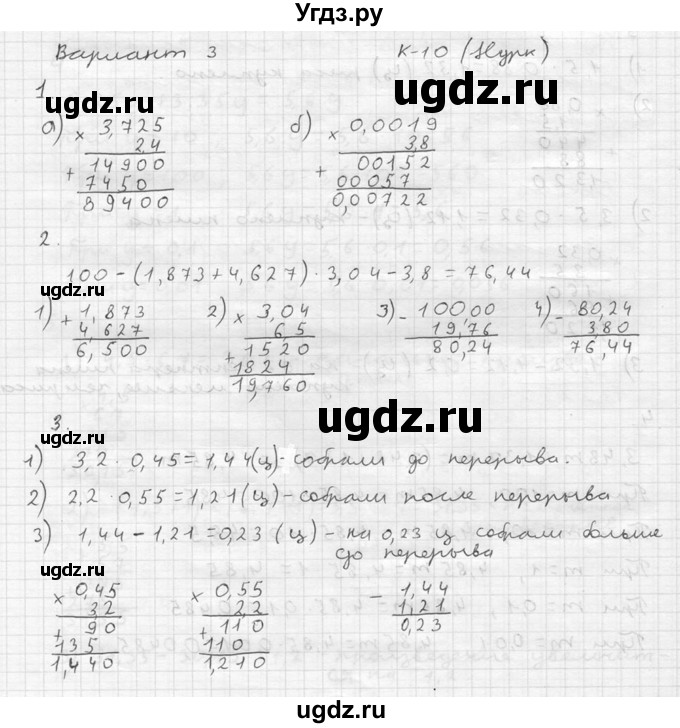 Угдз.ру
Вариант 3 К-10 (Нурк)
1
а) × 3,725 б) × 0,0019
2,4 3,8
+ 14900 + 00152
7450 00057
89400 0,00722
2.
100 - (1,873 + 4,627) · 3,04 - 3,8 = 76,44
1) + 1,873 2) × 3,04 3) - 100,00 4) - 80,24
4,627 6,5 19,76 3,80
6,500 + 1520 80,24 76,44
1824
19,760
3.
1) 3,2 · 0,45 = 1,44 (ц) - собрали до перерыва.
2) 2,2 · 0,55 = 1,21 (ц) - собрали после перерыва
3) 1,44 - 1,21 = 0,23 (ц) - на 0,23 ц собрали больше
до перерыва
× 0,45 × 0,55 - 1,44
3,2 2,2 1,21
+ 90 + 110 0,23
135 110
1,440 1,210
ugdz.ru
ugdz.ru
ugdz.ru
ugdz.ru
ugdz.ru
ugdz.ru
ugdz.ru
ugdz.ru